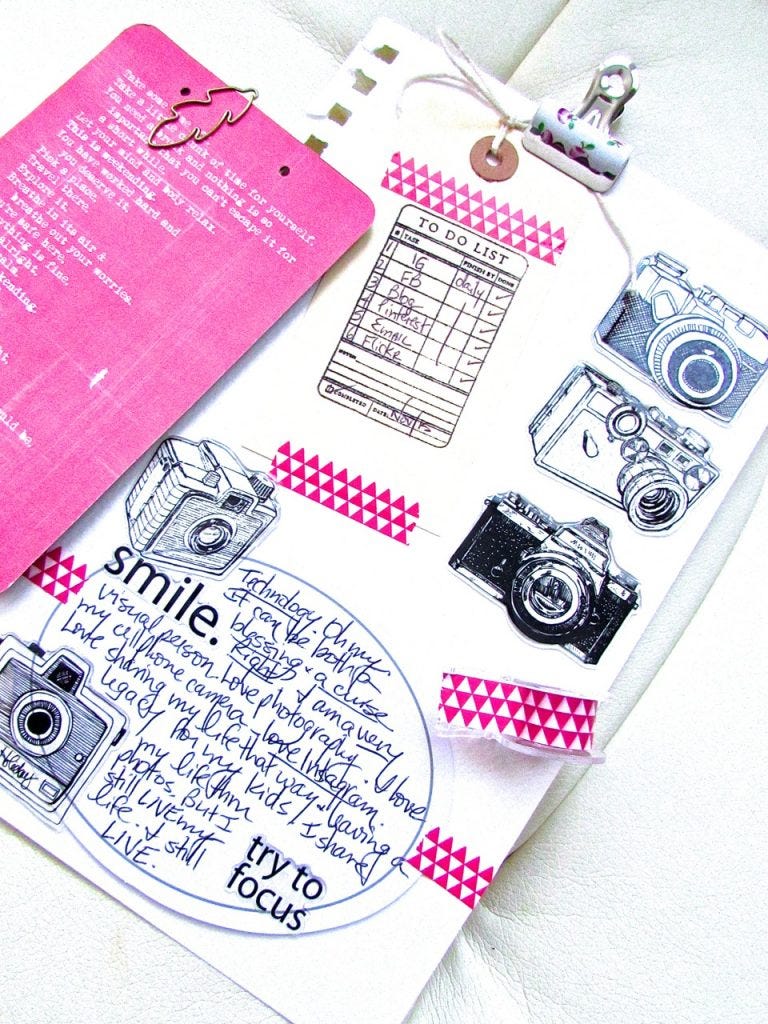 Take some
Take a little break of time for yourself.
You need a and nothing is so
important that you can't escape it for
a short while.
Let your mind and body relax.
This is weekending.
You have worked hard and
you deserve it.
Pick a place.
Travel there.
Explore it.
Breathe in its air &
breathe out your worries.
re safe here,
thing is fine,
alright.
kending
TO DO LIST
# TASK FINISH BY DONE
1 IG daily ✓
2 FB ✓
3 Blog ✓
4 Pinterest ✓
5 EMAIL ✓
6 Flickr ✓
NOTES
COMPLETED DATE: NOV/12
smile.
Technology. Oh my
it can be both a
blessing & a curse
Right? I am a very
visual person. Love photography. I love
my cellphone camera - love Instagram.
Love sharing my life that way & leaving a
legacy for my kids. I share
my life thru
photos. But I
still LIVE my
life. I still
LIVE.
try to
focus
Holiday